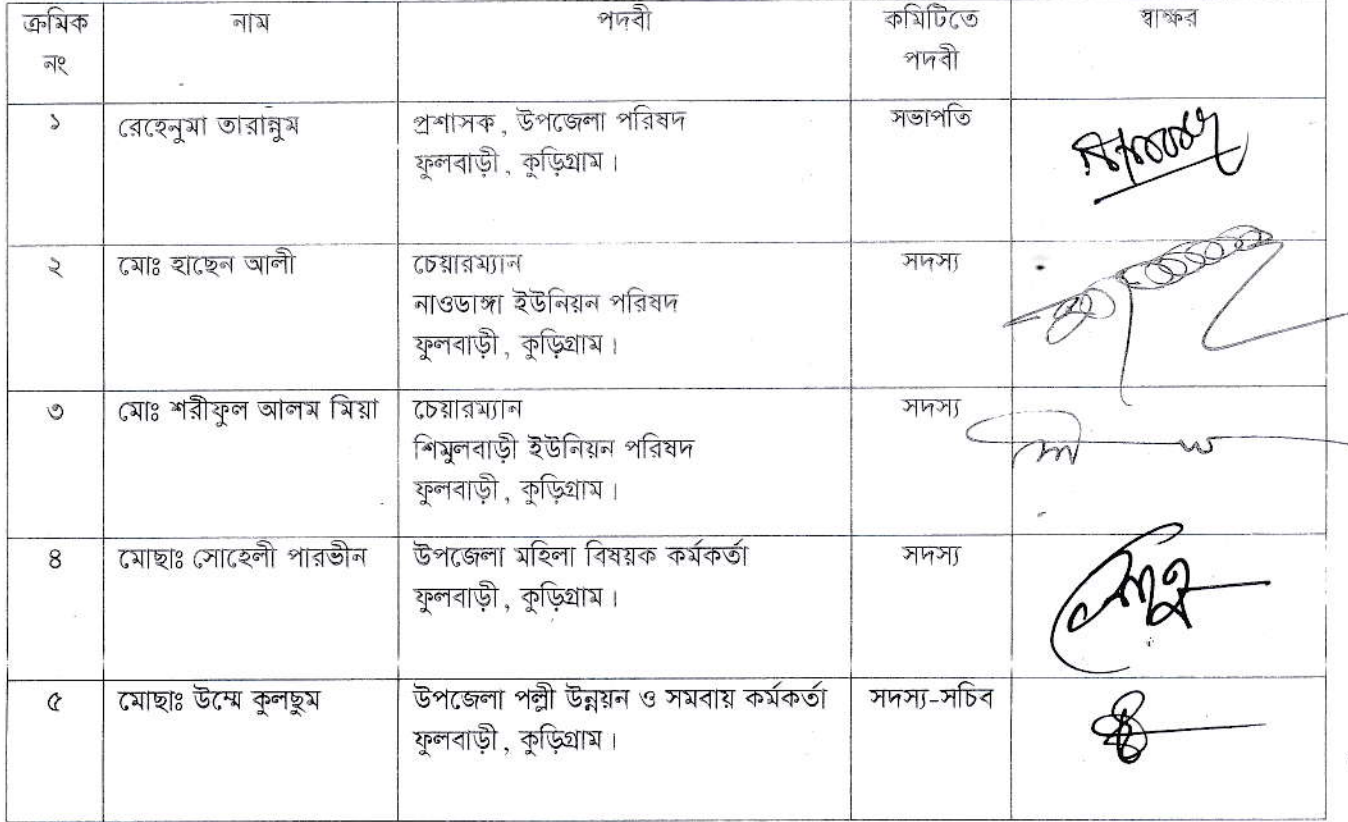 ক্রমিক নং নাম পদবী কমিটিতে পদবী স্বাক্ষর
১ রেহেনুমা তারান্নুম প্রশাসক, উপজেলা পরিষদ সভাপতি
ফুলবাড়ী, কুড়িগ্রাম।
২ মোঃ হাছেন আলী চেয়ারম্যান সদস্য
নাওডাঙ্গা ইউনিয়ন পরিষদ
ফুলবাড়ী, কুড়িগ্রাম।
৩ মোঃ শরীফুল আলম মিয়া চেয়ারম্যান সদস্য
শিমুলবাড়ী ইউনিয়ন পরিষদ
ফুলবাড়ী, কুড়িগ্রাম।
৪ মোছাঃ সোহেলী পারভীন উপজেলা মহিলা বিষয়ক কর্মকর্তা সদস্য
ফুলবাড়ী, কুড়িগ্রাম।
৫ মোছাঃ উম্মে কুলছুম উপজেলা পল্লী উন্নয়ন ও সমবায় কর্মকর্তা সদস্য-সচিব
ফুলবাড়ী, কুড়িগ্রাম।